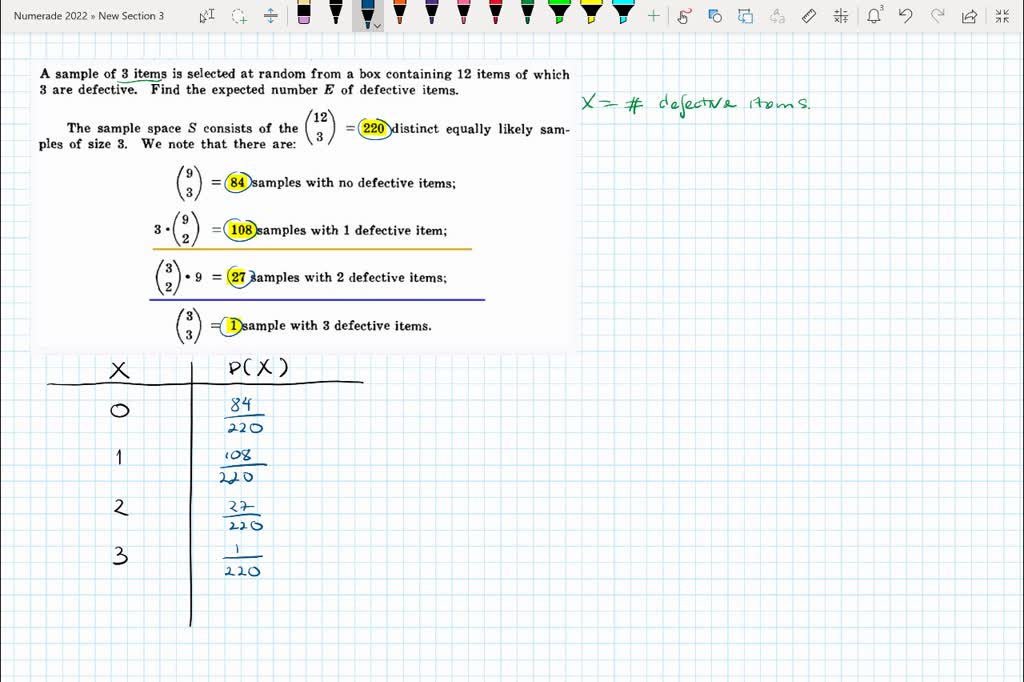 Numerade 2022 » New Section 3
3
A sample of 3 items is selected at random from a box containing 12 items of which
3 are defective. Find the expected number E of defective items.
X = # defective items.
The sample space S consists of the (12 3) = 220 distinct equally likely sam-
ples of size 3. We note that there are:
(9 3) = 84 samples with no defective items;
3 • (9 2) = 108 samples with 1 defective item;
(3 2) • 9 = 27 samples with 2 defective items;
(3 3) = 1 sample with 3 defective items.
X P(X)
0 84/220
1 108/220
2 27/220
3 1/220